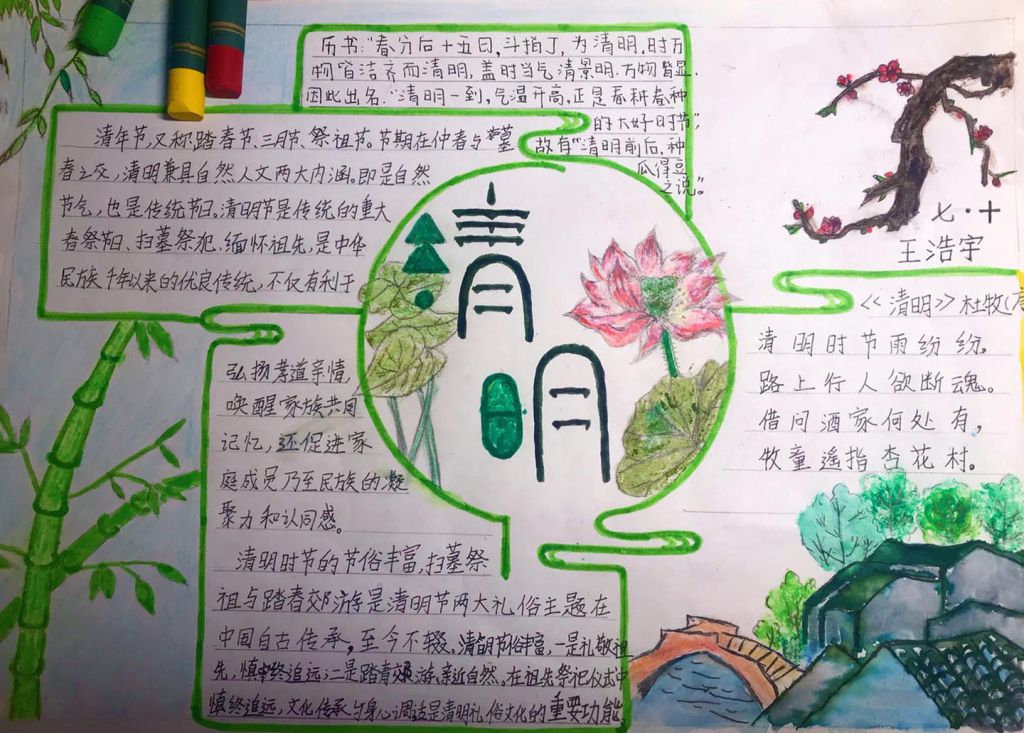 历书:"春分后十五日,斗指丁,为清明.时万
物皆洁齐而清明,盖时当气清景明.万物皆显.
因此出名."清明一到,气温开高,正是春耕春种
的大好时节",
故有"清明前后,种
瓜得豆
之说。"
清年节,又称踏春节、三月节、祭祖节。节期在仲春与墓
春之交,清明兼具自然人文两大内涵。即是自然
节气,也是传统节日。清明节是传统的重大
春祭节日、扫墓祭犯、缅怀祖先,是中华
民族千年以来的优良传统,不仅有利于
弘扬孝道亲情,
唤醒家族共同
记忆,还促进家
庭成员乃至民族的凝
聚力和认同感。
清明时节的节俗丰富,扫墓祭
祖与踏春郊游是清明节两大礼俗主题在
中国自古传承,至今不辍。清明节俗丰富,一是礼敬祖
先,慎终追远;二是踏青郊游、亲近自然。在祖先祭祀仪式中
慎终追远,文化传承与身心调适是清明礼俗文化的重要功能。
清明
七·十
王浩宇
<<清明>>杜牧(
清明时节雨纷纷。
路上行人欲断魂。
借问酒家何处有,
牧童遥指杏花村。